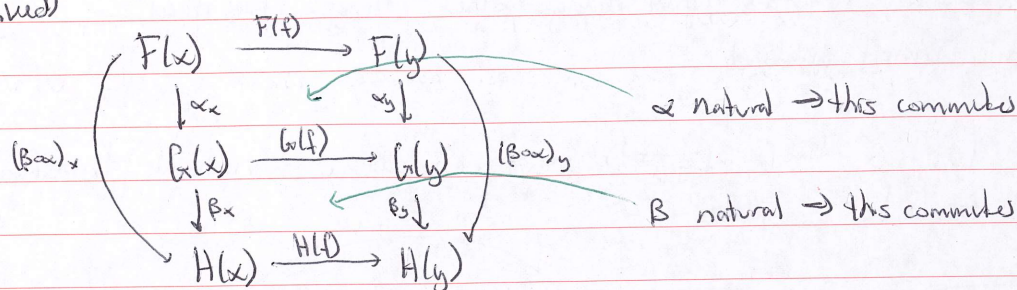 F(f)
F(x) F(y)
αx αy α natural → this commutes
G(f)
(β∘α)x G(x) G(y) (β∘α)y
βx βy β natural → this commutes
H(f)
H(x) H(y)